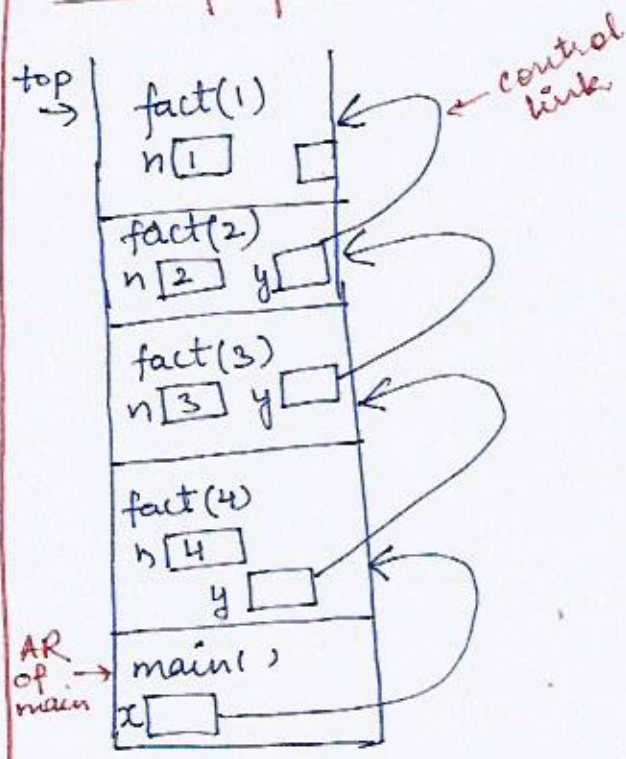 top
fact(1)
control
link
n 1
fact(2)
n 2 y
fact(3)
n 3 y
fact(4)
n 4
y
AR
of
main
main()
x